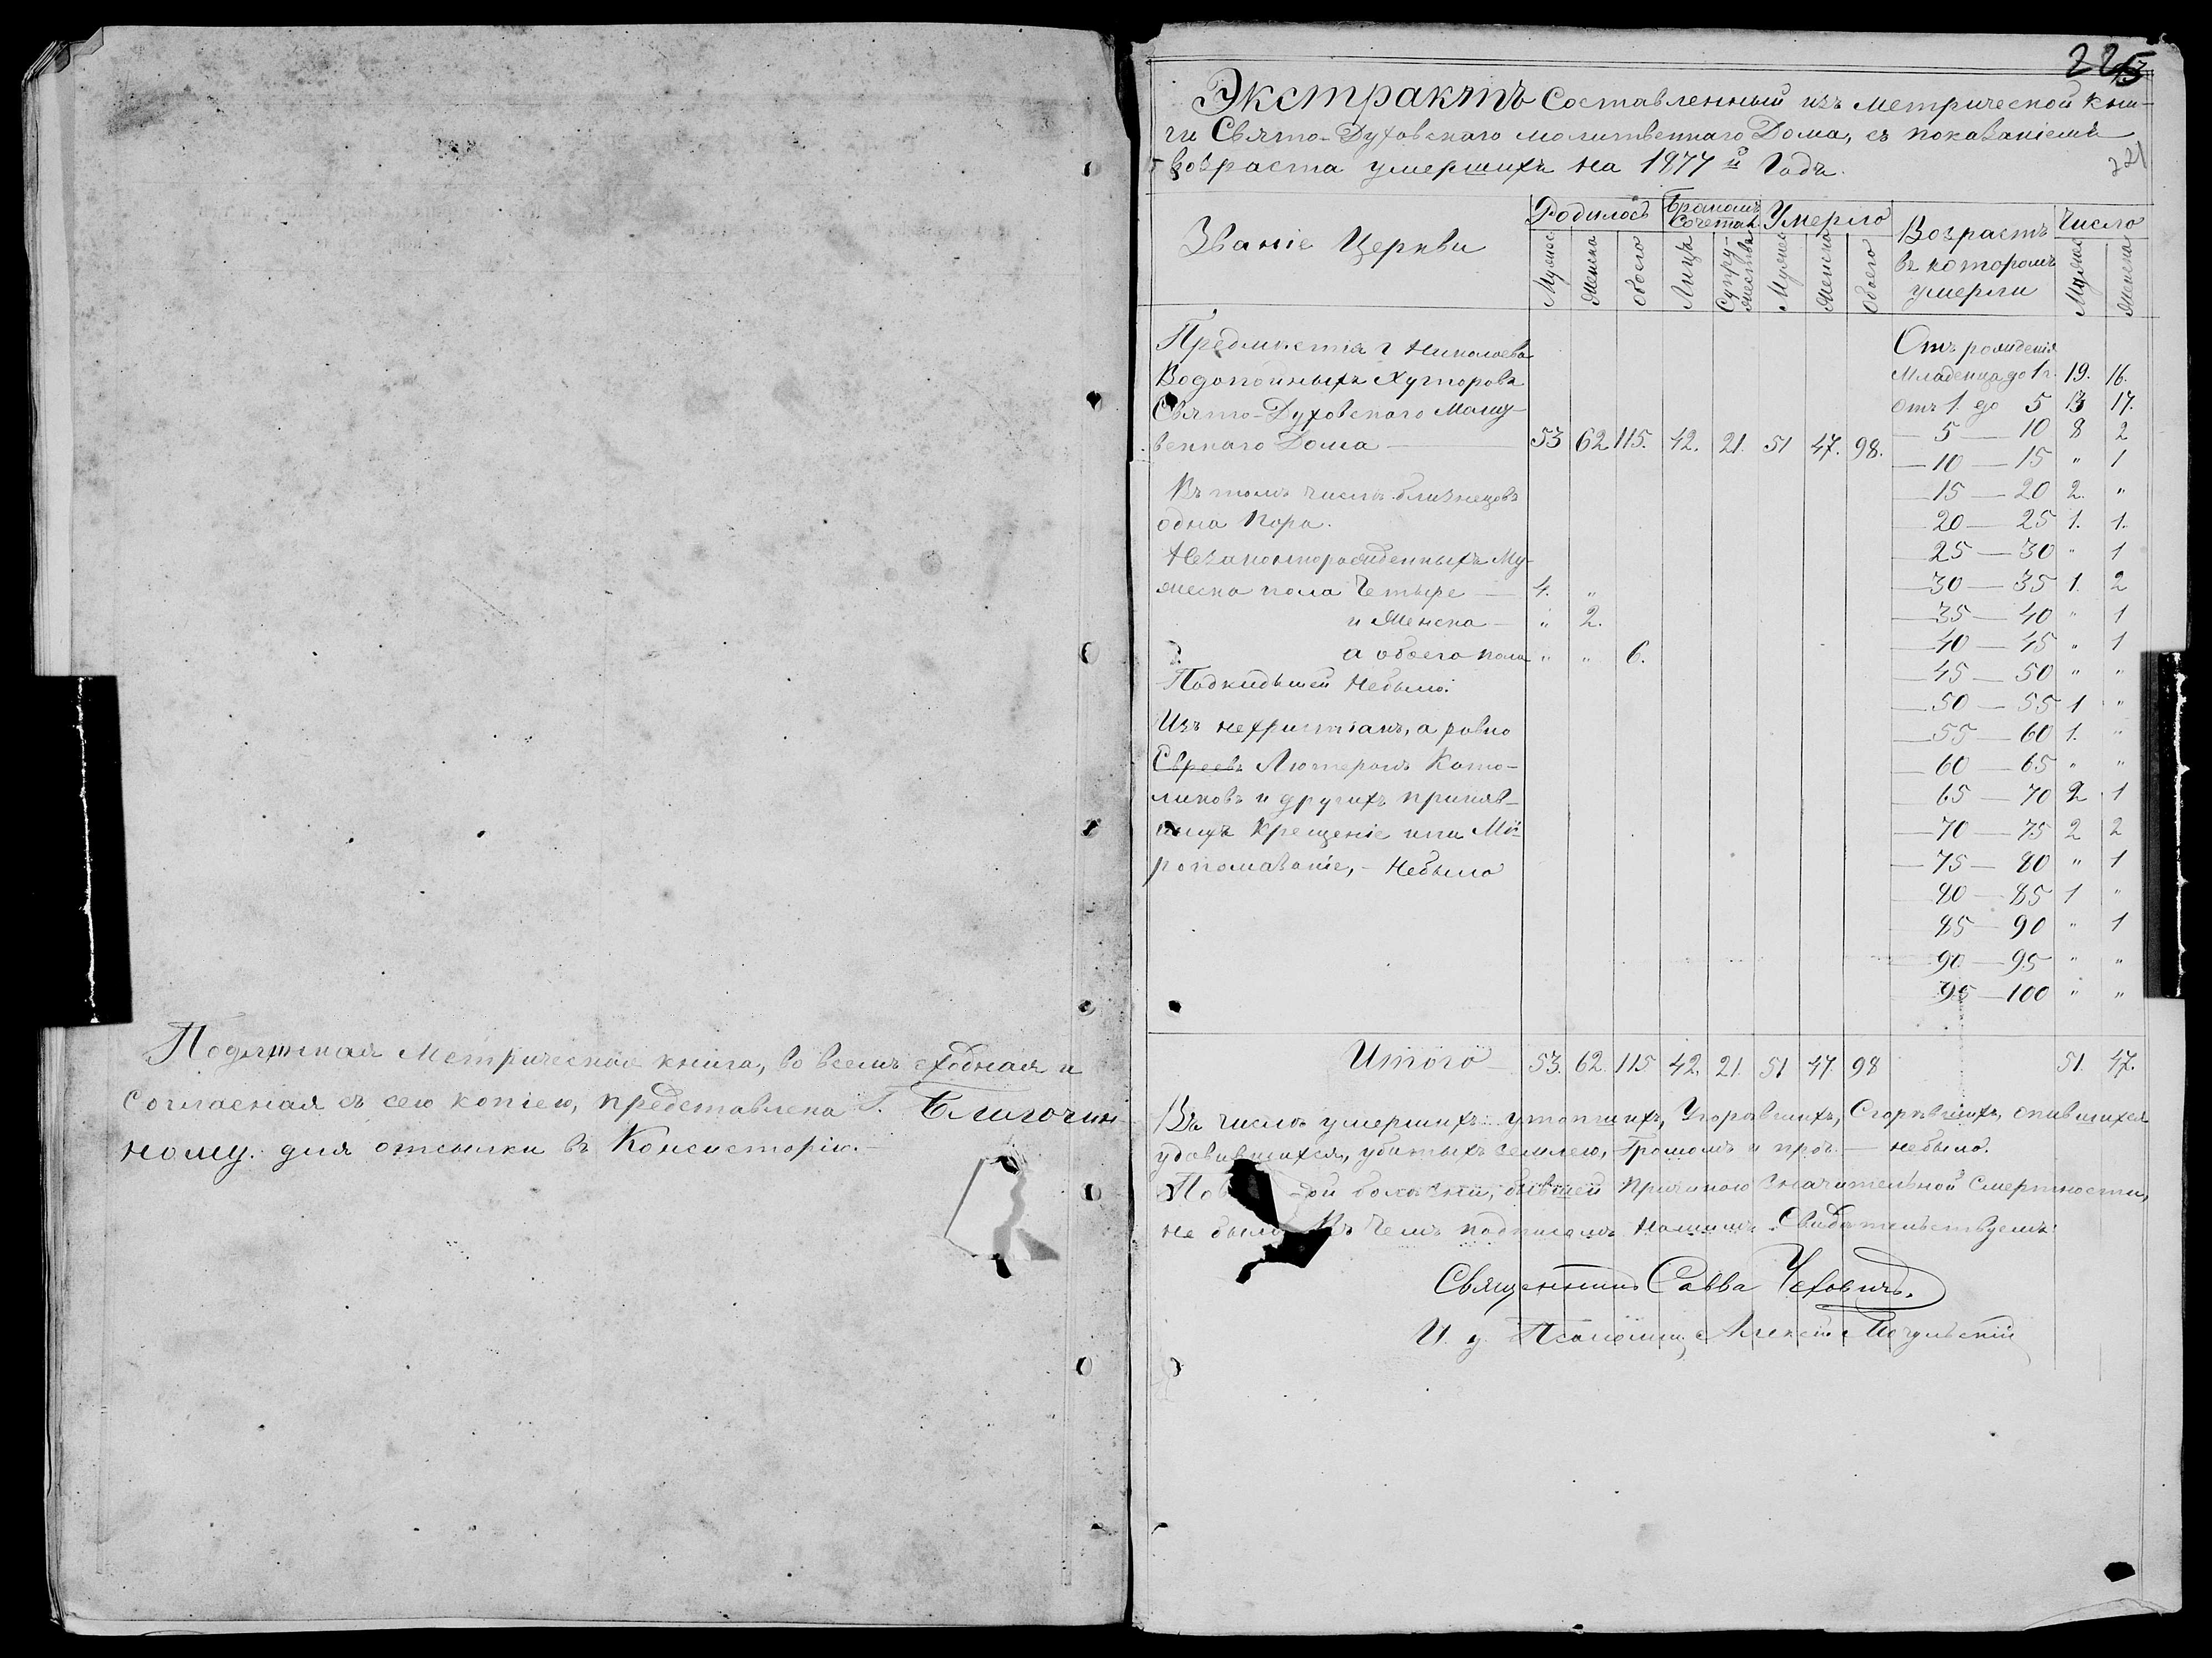 Подлинная Метрическая книга, во всемъ сходная и
Согласная съ сею копіею, представлена Г. Благочин-
ному для отсылки въ Консисторію.-
225
Экстрактъ Составленный изъ Метрической Кни-
ги Свято-Духовскаго молитвеннаго Дома, съ показаніемъ
221
возраста умершихъ на 1877й Годъ.
Званіе Церкви
Родилось Бракомъ Сочетан Умерло Возрастъ въ которомъ умерли Число
Мужес Женска Обоего Лицъ Супружествъ Мужес Женска Обоего Мужес Женска
Предместія г Николаева
Водопойныхъ Хуторовъ
Свято-Духовскаго Молит-
веннаго Дома — 53 62 115. 42. 21. 51 47. 98.
Въ томъ числѣ близнецовъ
одна пара.
Незаконнорожденныхъ Му-
жеска пола Четыре — 4. "
и Женска — " 2.
а обоего пола " " 6.
Подкидышей Небыло.
Изъ нехристіанъ, а ровно
Евреевъ Лютеранъ Като-
ликовъ и другихъ приняв-
шихъ Крещеніе или Мѵ-
ропомазаніе, - Небыло
Отъ рожденія
Младенца до 1 г. 19. 16.
Отъ 1. до 5 13 17.
— 5 — 10 8 2
— 10 — 15 " 1
— 15 — 20 2. "
20 — 25 1. 1.
— 25 — 30 " 1
— 30 — 35 1. 2
— 35 — 40 " 1
— 40 — 45 " 1
— 45 — 50 " "
— 50 — 55 1 "
— 55 — 60 1. "
— 60 — 65 " "
— 65 — 70 2 1
— 70 — 75 2 2
— 75 — 80 " 1
— 80 — 85 1 "
85 — 90 " 1
— 90 — 95 " "
95 — 100 " "
Итого — 53. 62. 115 42. 21. 51 47. 98 51. 47.
Въ числѣ умершихъ утопшихъ, Угоравшихъ, Сгорѣвшихъ, опившихся
удавившихся, убитыхъ землею, Громомъ и проч. — небыло.
болезни, бывшей Причиною Значительной Смертности,
не было Въ Чемъ подписомъ Нашимъ Свидѣтельствуемъ:
Священникъ Савва Чеховичъ.
И. д. Псаломщ Алексій Мочульскій